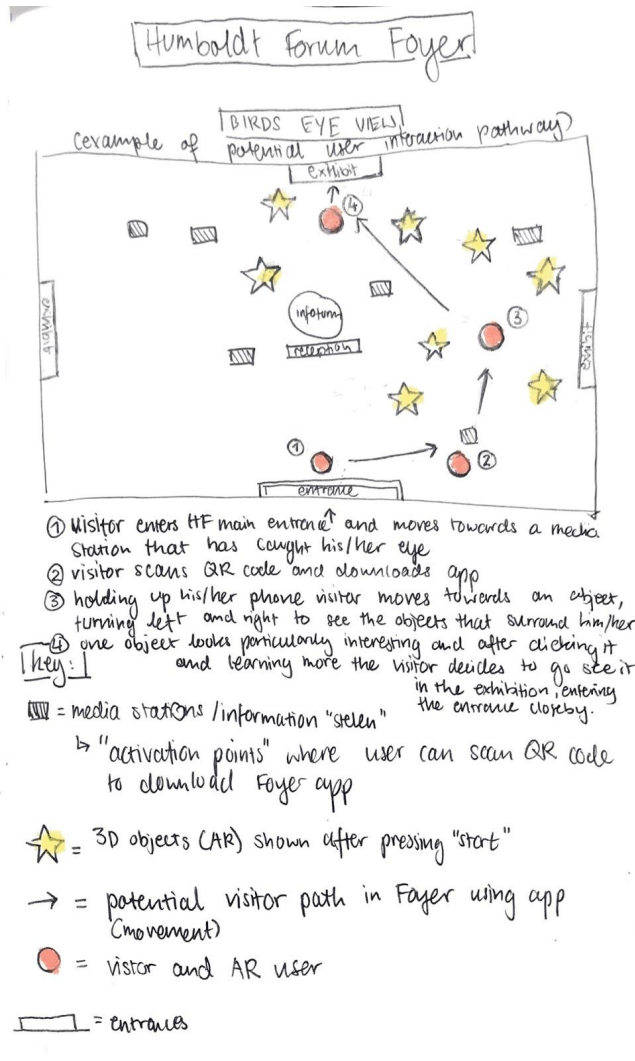 Humboldt Forum Foyer
BIRDS EYE VIEW
(example of potential user interaction pathway)
exhibit
④
infoturm
exhibit
③
exhibit
reception
①
②
entrance
① visitor enters HF main entrance↑ and moves towards a media
station that has caught his/her eye
② visitor scans QR code and downloads app
③ holding up his/her phone visitor moves towards an object,
turning left and right to see the objects that surround him/her
④ one object looks particularly interesting and after clicking it
and learning more the visitor decides to go see it
in the exhibition, entering
the entrance closeby.
key:
= media stations / information "stelen"
↳ "activation points" where user can scan QR code
to download Foyer app
= 3D objects (AR) shown after pressing "start"
→ = potential visitor path in Foyer using app
(movement)
= vistor and AR user
= entrances